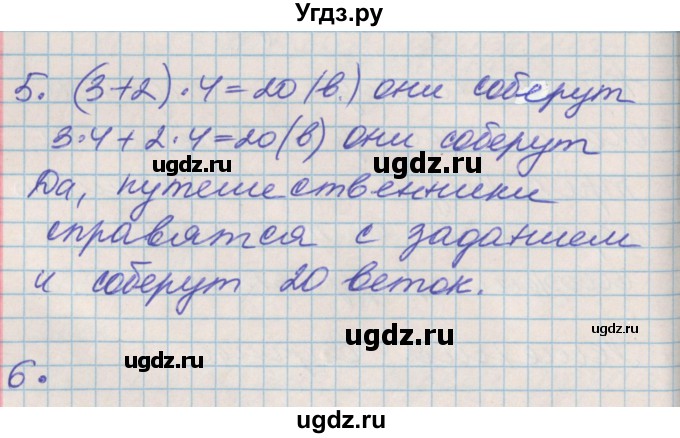 Угдз.ру
5. (3+2)·4=20(в.) они соберут
3·4+2·4=20(в) они соберут
ugdz.ru
ugdz.ru
Да, путешественники
ugdz.ru
справятся с заданием
и соберут 20 веток.
ugdz.ru
ugdz.ru
ugdz.ru
6.
ugdz.ru